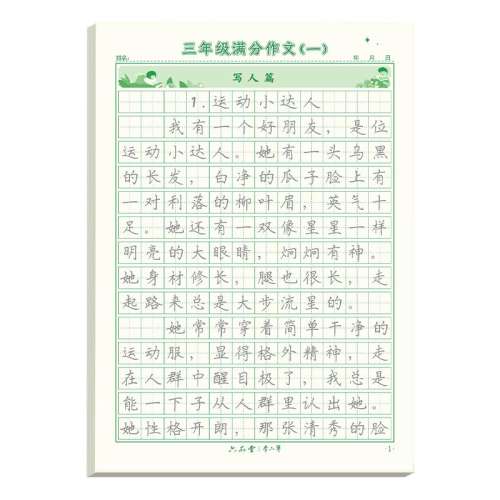 三年级满分作文(一)
姓名: 年 月 日
写人篇
1.运动小达人
我有一个好朋友，是位
运动小达人。她有一头乌黑
的长发，白净的瓜子脸上有
一对利落的柳叶眉，英气十
足。她还有一双像星星一样
明亮的大眼睛，炯炯有神。
她身材修长，腿也很长，走
起路来总是大步流星的。
她常常穿着简单干净的
运动服，显得格外精神，走
在人群中醒目极了，我总是
能一下子从人群里认出她。
她性格开朗，那张清秀的脸
六品堂
1